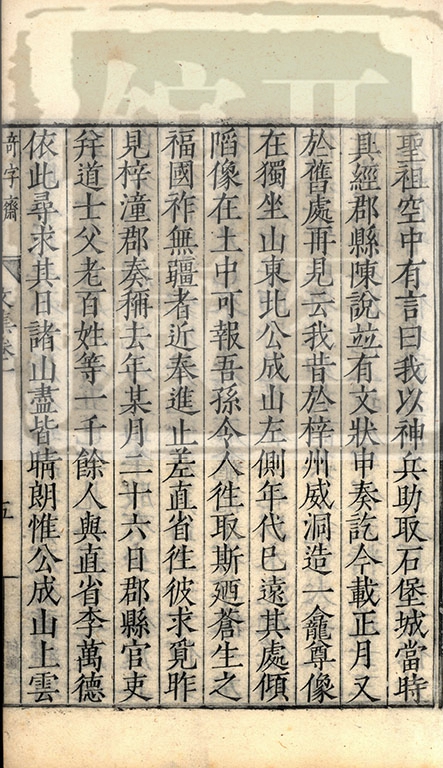 聖祖空中有言曰我以神兵助取石堡城當時
具經郡縣陳說並有文狀申奏訖今載正月又
於舊處再見云我昔於梓州威洞造一龕尊像
在獨坐山東北公成山左側年代已遠其處傾
陷像在土中可報吾孫令人徃取斯廼蒼生之
福國祚無疆者近奉進止差直省徃彼求覓昨
見梓潼郡奏稱去年某月二十六日郡縣官吏
并道士父老百姓等一千餘人與直省李萬德
依此尋求其日諸山盡皆晴朗惟公成山上雲
奇字齋
文集卷一
五